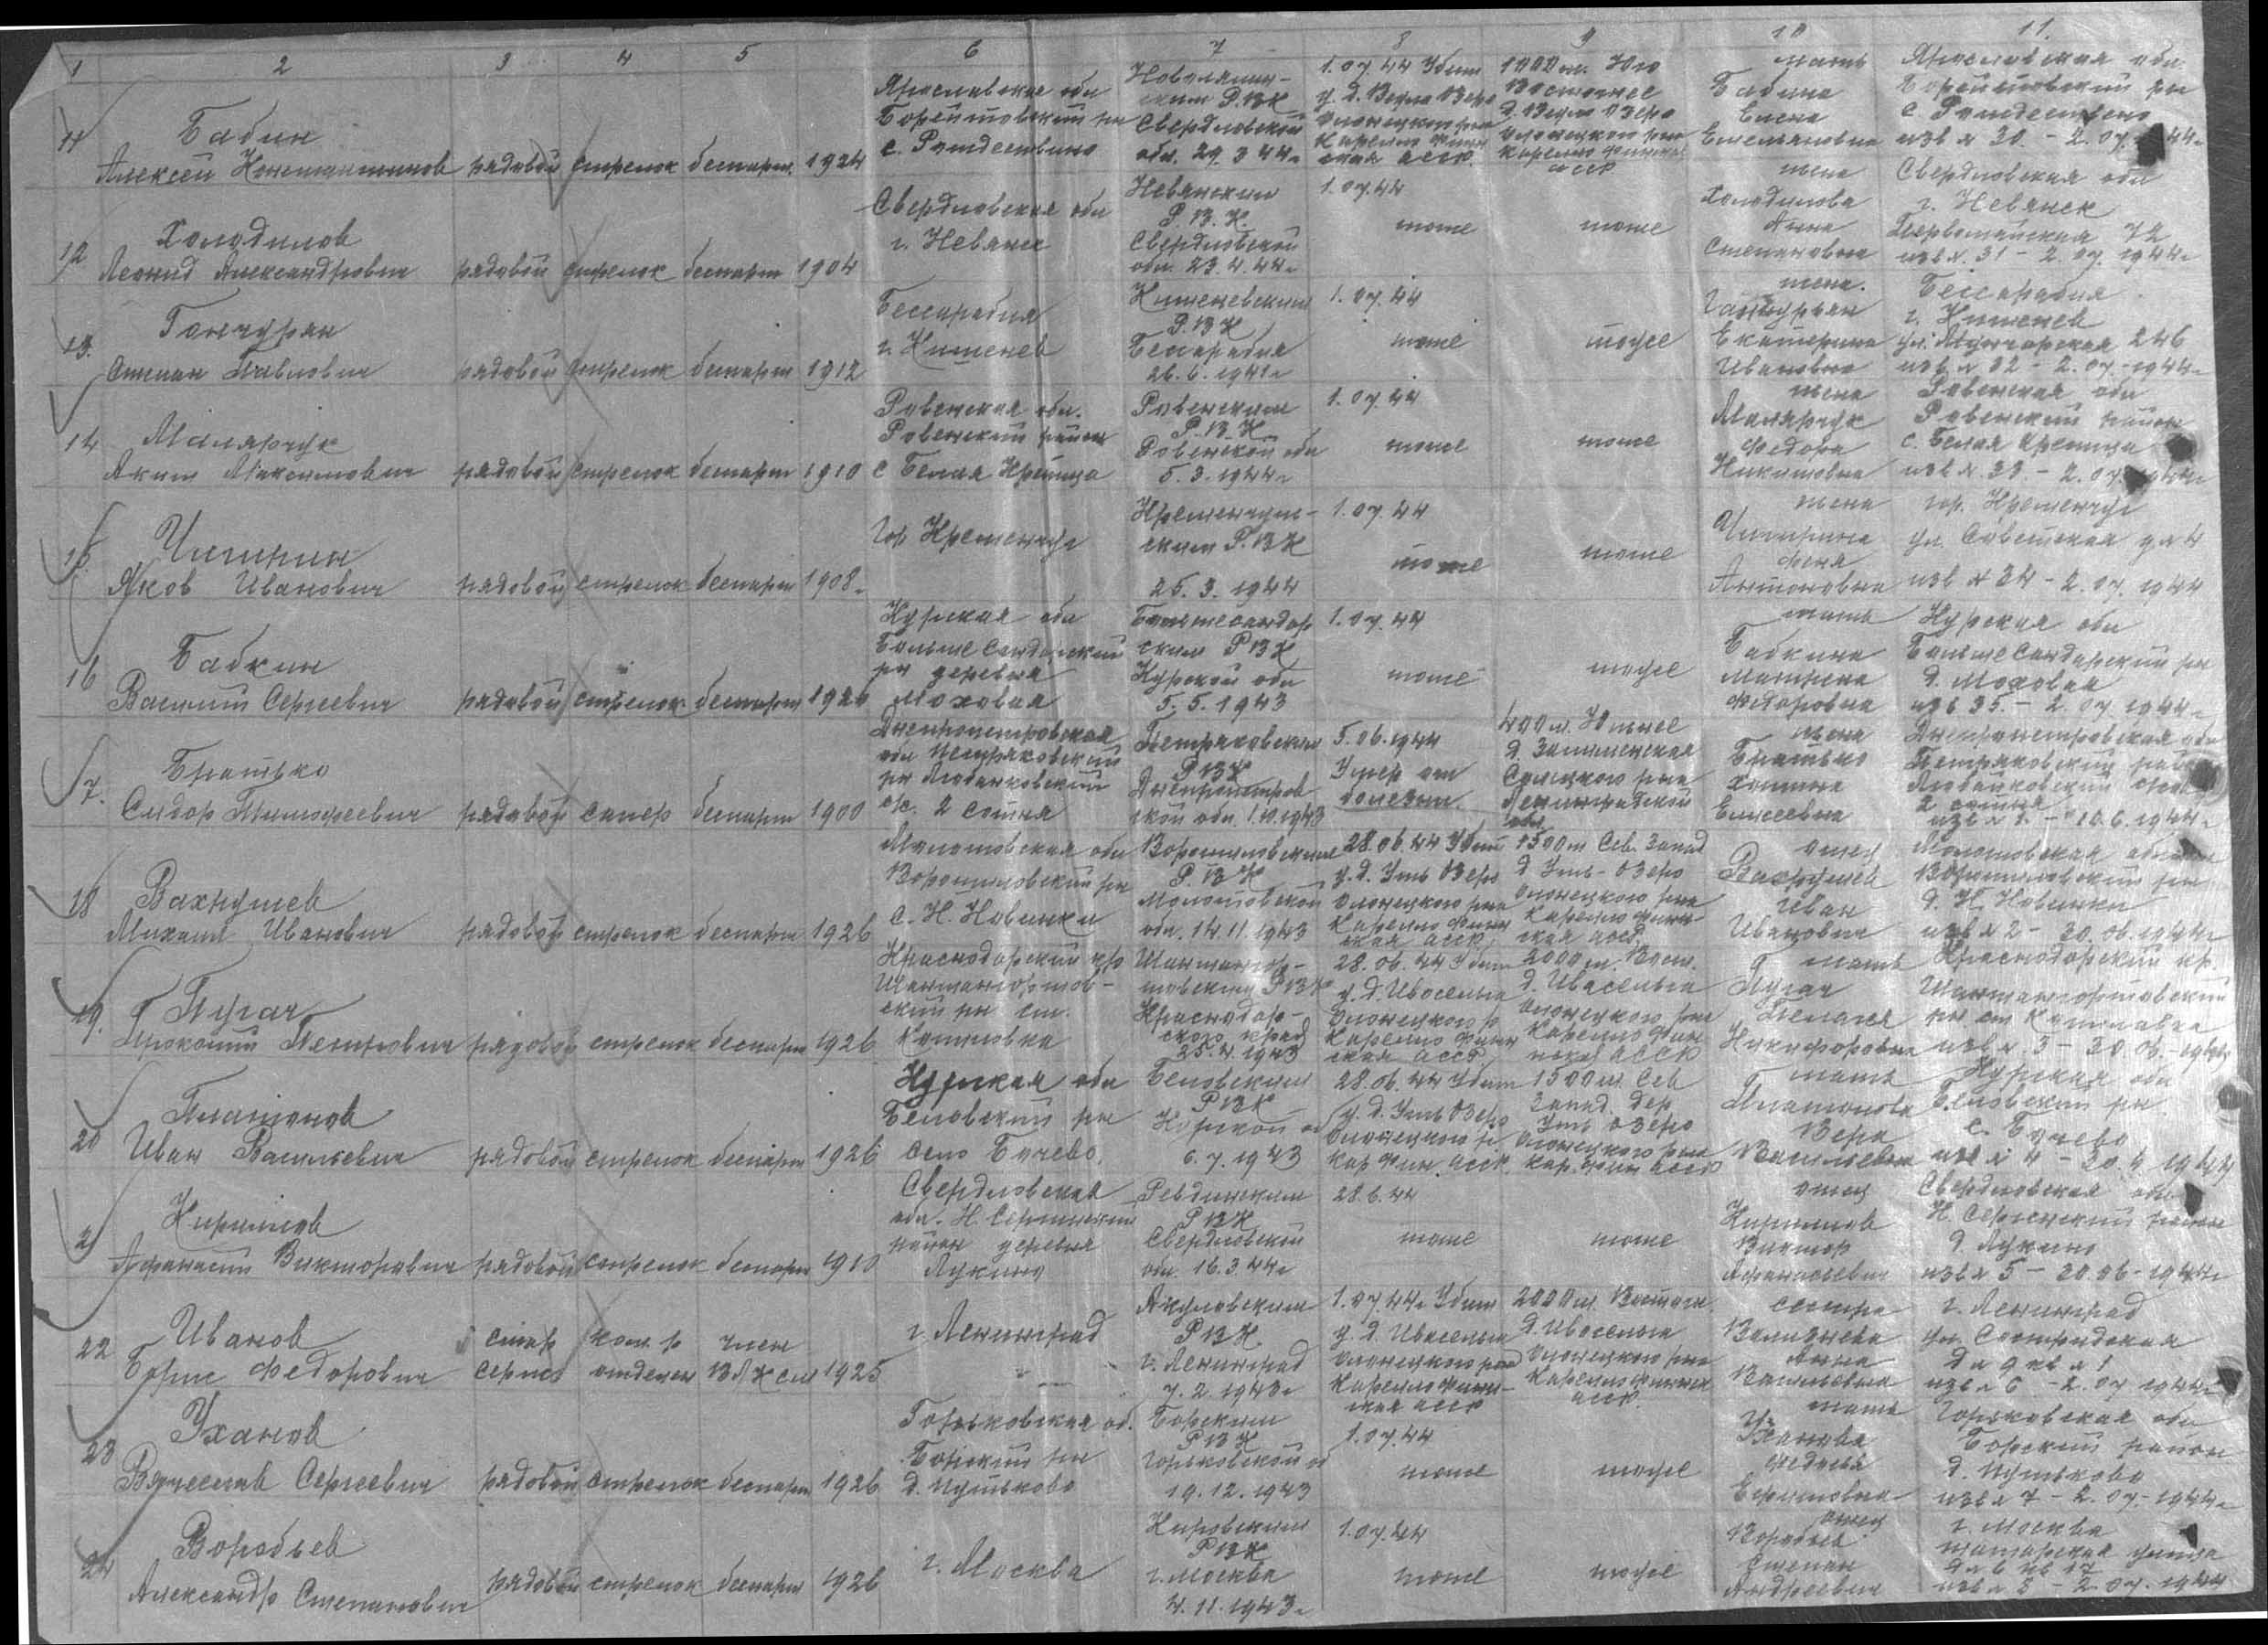 1 2 3 4 5 6 7 8 9 10 11
11
Бабин
Алексей Константинов
рядовой стрелок беспарт. 1924
Ярославская обл
Борейтовский рн
с. Рождествино
Новолялин-
ским РВК
Свердловской
обл. 29.3.44г
1.07.44 Убит
у д. Видло Озеро
Олонецкого рна
Карелло Финн
ская АССР
1000 м. Юго
Восточнее
д. Видло Озеро
Олонецкого рна
Карелло Финская
АССР
мать
Бабина
Елена
Емельяновна
Ярославская обл.
Борейтовский рн
с Рождествено
изв № 30 - 2.07.44г
12
Холодилов
Леонид Александрович
рядовой стрелок беспарт 1904
Свердловская обл
г. Невянск
Невянским
Р.В.К.
Свердловской
обл. 23.4.44г
1.07.44
тоже
тоже
жена
Холодилова
Анна
Степановна
Свердловская обл
г. Невянск
Первомайская 72
изв №. 31 - 2.07.1944г
13.
Гончурян
Степан Павлович
рядовой стрелок беспарт 1912
Бессарабия
г. Кишенев
Кишеневским
Р.В.К
Бесарабия
26.6.1941г
1.07.44
тоже
тоже
жена.
Екатерина
Ивановна
Бессарабия
г. Кишенев
246
изв № 32 - 2.07.-1944г
14
Малярчук
Аким Максимович
рядовой стрелок беспарт 1910
Ровенская обл.
Ровенский район
с Белая Криница
Ровенским
Р.В.К.
Ровенской обл
5.3.1944г
1.07.44
тоже
тоже
жена
Малярчук
Федора
Никитовна
Ровенская обл
Ровенский район
с. Белая Креница
изв №. 33 - 2.07.1944г
15
Чигирин
Яков Иванович
рядовой стрелок беспарт 1908г
Гор Кременчуг
Кременчуг-
ским Р.В.К
25.3.1944
1.07.44
тоже
тоже
жена
Чигирина
Феня
Антоновна
гор. Кременчуг
ул. Советская д № 4
изв № 34 - 2.07.1944
16
Бабкин
Василий Сергеевич
рядовой стрелок беспарт
Курская обл
Больше Солдатский
рн деревня
Моховая
Большесолдат
ским РВК
Курской обл
5.5.1943
1.07.44
тоже
тоже
мать
Бабкина
Матрена
Федоровна
Курская обл
Больше Солдатский рн
д. Моховая
изв 35. - 2.07.1944г
17.
Братько
Сидор Тимофеевич
рядовой сапер беспарт 1900
Днепропетровская
обл Петряковский
рн
с/с. 2 сотня
Петряковским
РВК
Днепропетров
ской обл. 1.10.1943
5.06.1944
Умер от
болезни.
400 м. Южнее
д.
рна
Ленинградской
обл
жена
Братько
Елисеевна
Днепропетровская обл
Петряковский район
2 сотня
изв № 1. - 10.6.1944г
18
Вахрушев
Михаил Иванович
рядовой стрелок беспарт 1926
Молотовская обл
Ворошиловский рн
с. Н. Новинки
Ворошиловским
Р.В.К
Молотовской
обл. 14.11.1943
28.06.44 Убит
у д. Утть Озеро
Олонецкого рна
Карелло Финн
ская АССР
1500 м Сев. Запад
д Утть-Озеро
Олонецкого рна
Карелло Финн-
ская АССР.
отец
Вахрушев
Иван
Иванович
Молотовская область
Ворошиловский рн
д. Н. Новинки
изв № 2 - 30.06.1944г
19.
Пугач
Прокопий Петрович
рядовой стрелок беспарт 1926
Краснодарский кр
Штангенфортов-
ский рн ст.
товским РВК
Краснодар-
ского края
25.4.1943
28.06.44 Убит
у. д. Ивосельга
Олонецкого р
Карелло Финн
ская АССР
2000 м. Вост.
д. Ивасельга
Олонецкого рна
Карелло Фин
нская АССР
мать
Пугач
Пелагея
Никифоровна
Краснодарский кр.
изв №. 3 - 30.06.-1944г
20
Платонов
Иван Васильевич
рядовой стрелок беспарт 1926
Курская обл
Беловский рн
село Бучево.
Беловским
РВК
Курской об
6.7.1943
28.06.44 Убит
у. д. Утть Озеро
Олонецкого р
Кар Фин. АССР
1500 м. Сев
Запад. дер
Утть Озеро
Олонецкого рна
Кар. Фин АССР
мать
Платонова
Вера
Васильевна
Курская обл
Беловский рн
с. Бучево
21
Кириллов
Афанасий Викторович
рядовой стрелок беспарт 1910
Свердловская
обл. Н. Сергинский
район деревня
Лукино
Ревдинским
РВК
Свердловской
обл. 16.3.44г
28.6.44
тоже
тоже
отец
Кириллов
Виктор
Афанасьевич
Свердловская обл
Н. Сергинский район
д. Лукино
изв № 5 - 30.06-1944г
22
Иванов
Борис Федорович
стар
сержт
ком-р
отделен
член
ВЛКСМ
1925
г. Ленинград
РВК.
г. Ленинград
7.2.1943г
1.07.44г Убит
у. д. Ивасельга
Олонецкого рна
Карелло Финн-
ская АССР
2000 м. Восточн.
д. Ивосельга
Олонецкого рна
Карелло Финская
АССР.
сестра
Анна
Васильевна
г. Ленинград
д № 9 кв № 1
изв № 6 - 2.07.1944г
23
Уханов
Вячеслав Сергеевич
рядовой стрелок беспарт 1926
Горьковская об.
Борский рн
д. Путьково
Борским
РВК
Горьковской об
19.12.1943
1.07.44
тоже
тоже
мать
Уханова
Ефимовна
Горьковская обл
Борский район
д. Путьково
изв № 7 - 2.07.-1944г
24
Воробьев
Александр Степанович
рядовой стрелок беспарт 1926
г. Москва
Кировским
РВК
г. Москва
4.11.1943г
1.07.44
тоже
тоже
отец
Воробьев
Степан
Андреевич
г. Москва
Татарская улица
изв № 8 - 2.07.1944